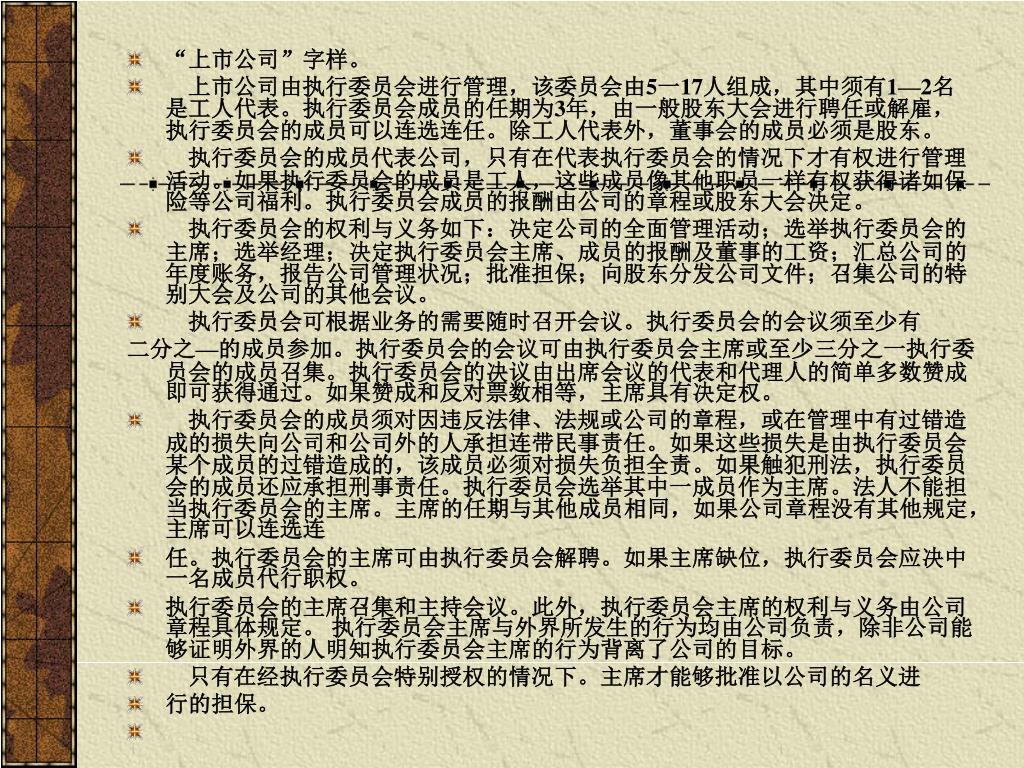 “上市公司”字样。
上市公司由执行委员会进行管理，该委员会由5一17人组成，其中须有1—2名
是工人代表。执行委员会成员的任期为3年，由一般股东大会进行聘任或解雇，
执行委员会的成员可以连选连任。除工人代表外，董事会的成员必须是股东。
执行委员会的成员代表公司，只有在代表执行委员会的情况下才有权进行管理
活动。如果执行委员会的成员是工人，这些成员像其他职员一样有权获得诸如保
险等公司福利。执行委员会成员的报酬由公司的章程或股东大会决定。
执行委员会的权利与义务如下：决定公司的全面管理活动；选举执行委员会的
主席；选举经理；决定执行委员会主席、成员的报酬及董事的工资；汇总公司的
年度账务，报告公司管理状况；批准担保；向股东分发公司文件；召集公司的特
别大会及公司的其他会议。
执行委员会可根据业务的需要随时召开会议。执行委员会的会议须至少有
二分之—的成员参加。执行委员会的会议可由执行委员会主席或至少三分之一执行委
员会的成员召集。执行委员会的决议由出席会议的代表和代理人的简单多数赞成
即可获得通过。如果赞成和反对票数相等，主席具有决定权。
执行委员会的成员须对因违反法律、法规或公司的章程，或在管理中有过错造
成的损失向公司和公司外的人承担连带民事责任。如果这些损失是由执行委员会
某个成员的过错造成的，该成员必须对损失负担全责。如果触犯刑法，执行委员
会的成员还应承担刑事责任。执行委员会选举其中一成员作为主席。法人不能担
当执行委员会的主席。主席的任期与其他成员相同，如果公司章程没有其他规定，
主席可以连选连
任。执行委员会的主席可由执行委员会解聘。如果主席缺位，执行委员会应决中
一名成员代行职权。
执行委员会的主席召集和主持会议。此外，执行委员会主席的权利与义务由公司
章程具体规定。 执行委员会主席与外界所发生的行为均由公司负责，除非公司能
够证明外界的人明知执行委员会主席的行为背离了公司的目标。
只有在经执行委员会特别授权的情况下。主席才能够批准以公司的名义进
行的担保。